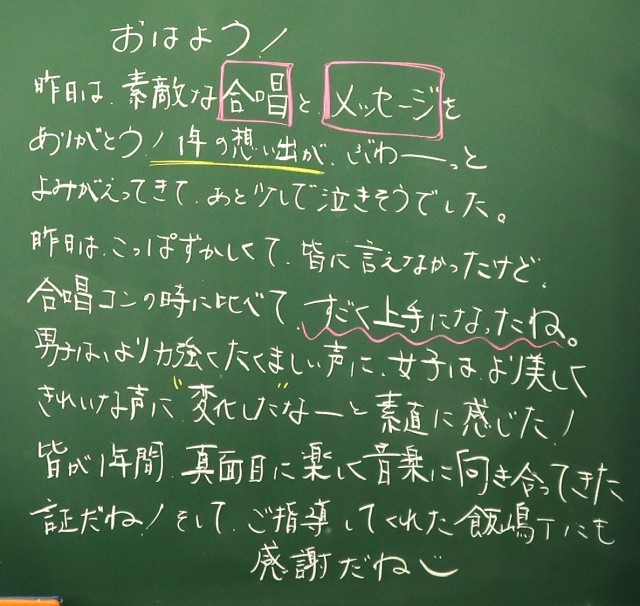 おはよう!
昨日は、素敵な合唱と、メッセージを
ありがとう!1年の想い出が、ぶわーっと
よみがえってきて、あと少しで泣きそうでした。
昨日は、こっぱずかしくて、皆に言えなかったけど、
合唱コンの時に比べて、すごく上手になったね。
男子は、より力強くたくましい声に、女子は、より美しく
きれいな声に"変化した"なーと素直に感じた!
皆が1年間、真面目に楽しく音楽に向き合ってきた
証だね!そして、ご指導してくれた飯嶋Tにも
感謝だね